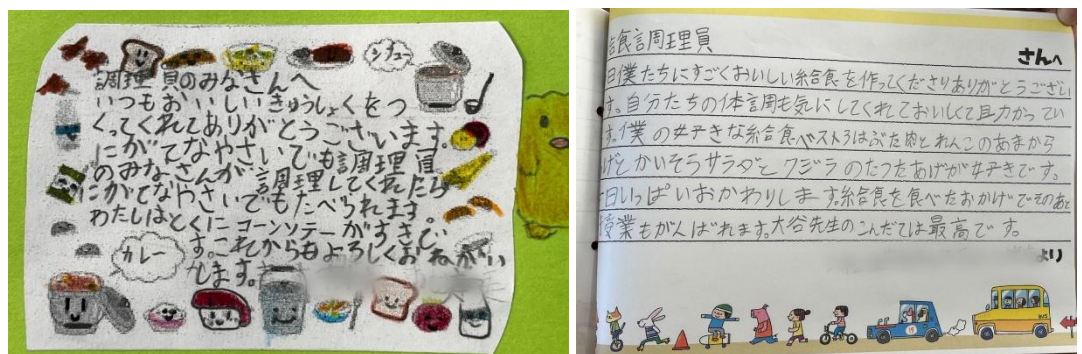 シチュー
調理員のみなさんへ
いつもおいしいきゅうしょくをつ
くってくれてありがとうございます。
にがてなやさいでも調理員
のみなさんが調理してくれたら
にがてなやさいでもたべられます。
わたしはとくにコーンソテーがすきで
す。これからもよろしくおねがい
します。
カレー
給食調理員
さんへ
日僕たちにすごくおいしい給食を作ってくださりありがとうござい
す。自分たちの体調も気にしてくれておいしくて助かってい
す。僕の好きな給食ベスト3はぶた肉とれんこのあまから
げとかいそうサラダとクジラのたつたあげが好きです。
日いっぱいおかわりします。給食を食べたおかげでそのあと
授業もがんばれます。大谷先生のこんだては最高です。
より
BUS